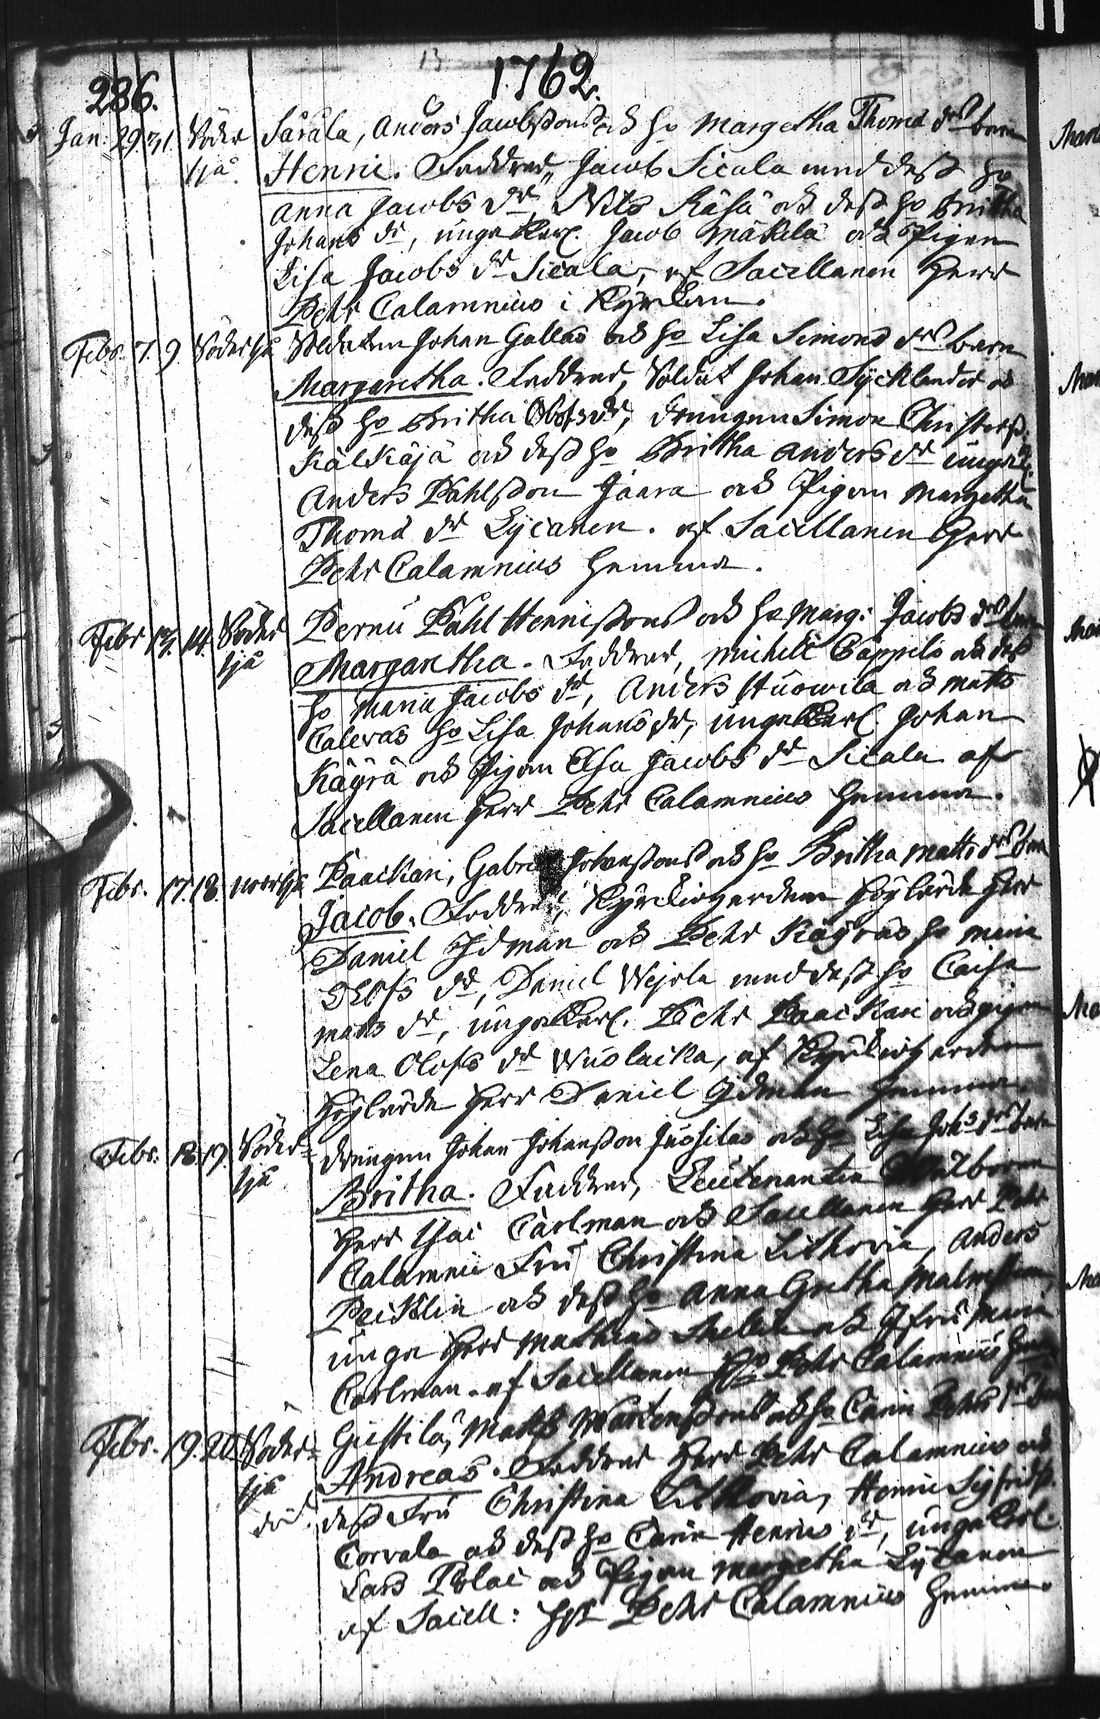 286. 1762.
Jan: 29. 31. Söder Särala, Anders Jacobssons och ho Margetha Thoms dr barn
sjä. Henric. Faddrar, Jacob Sicala med dess ho
Anna Jacobs dr, Nils Räsä och dess ho Britha
Johans dr, unge Karl. Jacob Mäkelä och Pigan
Lisa Jacobs dr Sicala, af Sacellanen Herr
Pehr Calamnius i Kyrckan.
Febr. 7. 9. Södersjä Soldaten Johan Gallas och ho Lisa Simons dr barn
Margaretha. Faddrar, Soldat Johan Sycklander och
dess ho Britha Olofs dr, drängen Simon Christerss.
Kälkäjä och dess ho Britha Anders dr unge K.
Anders Påhlsson Jaara och Pigan Margetha
Thoms dr Lycanen. af Sacellanen Herr
Pehr Calamnius hemma.
Febr 13. 14. Söder Pernu Påhl Henrissons och ho Marg: Jacobs dr barn
sjä Margaretha. Faddrar, Michell Cappilo och dess
ho Maria Jacobs dr, Anders Huowila och Matts
Calevas ho Lisa Johans dr, unge Karl. Johan
Käyrä och Pigan Elsa Jacobs dr Sicala af
Sacellanen Herr Pehr Calamnius hemma.
Febr. 17. 18. norrsjä Paackari, Gabriel Johanssons och ho Britha Matts dr barn
Jacob. Faddrar, Kyrckioherden Höglärde Herr
Daniel Idman och Pehr Käyräs ho
Olofs dr, Daniel Wejola med dess ho Caisa
Matts dr, unge Karl. Pehr Paackari och pigan
Lena Olofs dr Wuolaika, af Kyrckioherden
Höglärde Herr Daniel Idman hemma.
Febr. 18. 19. Söder- drängen Johan Johansson Juosilas och ho Lisa Johs dr barn
sjä Britha. Faddrar, Leutenanten Wälborne
Herr Carlman och Sacellanen Herr Pehr
Calamnii Fru Christina Lithovia, Anders
Pricklin och dess ho Anna Gretha Malmsteen,
unge Herr Mathias och Jfru Maria
Carlman. af Sacellanen Hr Pehr Calamnius hemma
Febr. 19. 20. Söder- Gustila, Matts Mårtenssons och ho Carin Pehrs dr barn
sjä Andreas. Faddrar Herr Pehr Calamnius och
död. dess Fru Christina Lithovia, Henric Sigfridss.
Corvala och dess ho Carin Henrics dr, unge Karl.
Lars Polai och Pigan Margetha Lycanen
af Sacell: Hr Pehr Calamnius hemma.